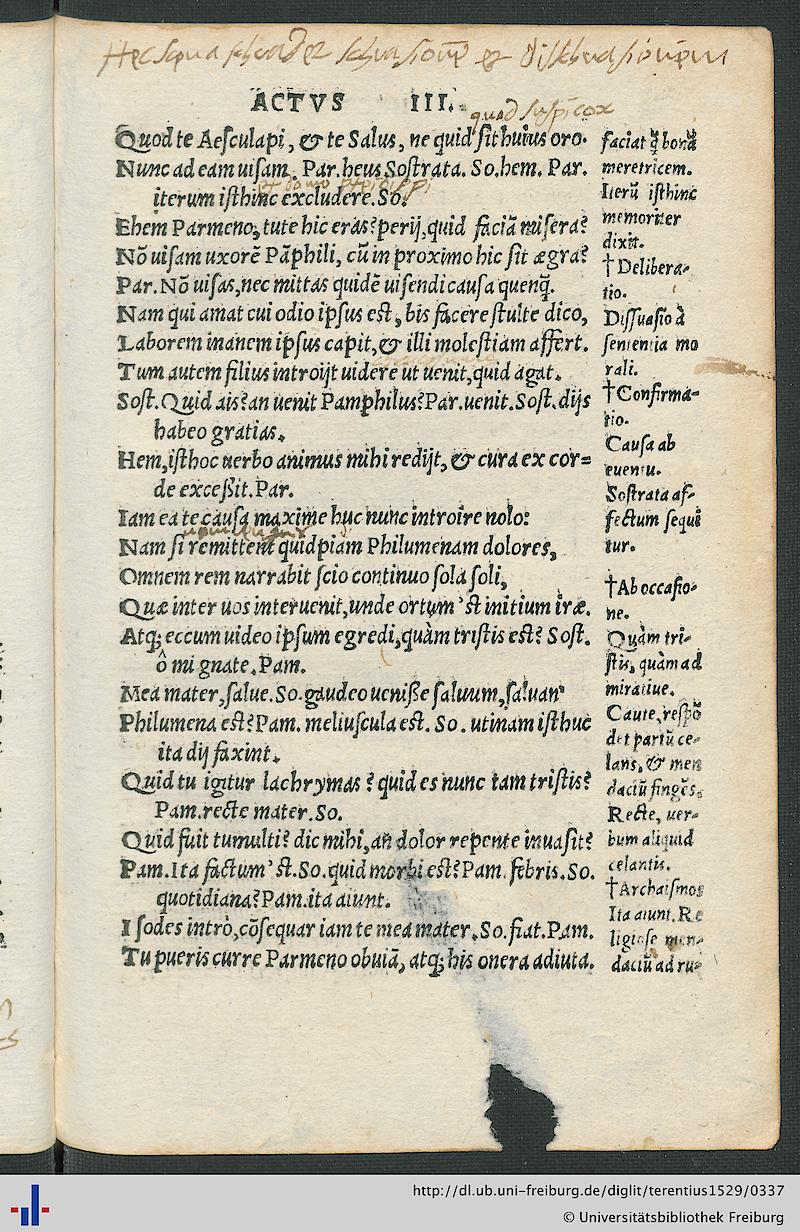 ACTVS III.
Quod te Aesculapi, & te Salus, ne quid sit huius oro.
Nunc ad eam uisam. Par. heus Sostrata. So. hem. Par.
iterum isthinc excludere. So.
Ehem Parmeno, tute hic eras? perij, quid faciā misera?
Nō uisam uxorē Pāphili, cū in proximo hic sit ægra?
Par. Nō uisas, nec mittas quidē uisendi causa quenq̃.
Nam qui amat cui odio ipsus est, bis facere stulte dico,
Laborem inanem ipsus capit, & illi molestiam affert.
Tum autem filius introijt uidere ut uenit, quid agat.
Sost. Quid ais? an uenit Pamphilus? Par. uenit. Sost. dijs
habeo gratias.
Hem, isthoc uerbo animus mihi redijt, & cura ex cor=
de exceßit. Par.
Iam ea te causa maxime huc nunc introire nolo:
Nam si remittent quidpiam Philumenam dolores,
Omnem rem narrabit scio continuo sola soli,
Quæ inter uos interuenit, unde ortum'st initium iræ.
Atq; eccum uideo ipsum egredi, quàm tristis est? Sost.
ô mi gnate. Pam.
Mea mater, salue. So. gaudeo ueniße saluum, saluan'
Philumena est? Pam. meliuscula est. So. utinam isthuc
ita dij faxint.
Quid tu igitur lachrymas? quid es nunc tam tristis?
Pam. recte mater. So.
Quid fuit tumulti? dic mihi, an dolor repente inuasit?
Pam. Ita factum'st. So. quid morbi est? Pam. febris. So.
quotidiana? Pam. ita aiunt.
I sodes intrò, cōsequar iam te mea mater. So. fiat. Pam.
Tu pueris curre Parmeno obuiā, atq; his onera adiuta.
faciat q̃ bonā
meretricem.
Iterū isthinc
memoriter
dixit.
† Delibera-
tio.
Dissuasio à
sententia mo
rali.
† Confirma-
tio.
Causa ab
euentu.
Sostrata af-
fectum sequi
tur.
† Ab occasio-
ne.
Quàm tri-
stis, quàm ad
miratiue.
Caute, respō
det partū ce-
lans, & men
daciū fingēs.
Recte, uer-
bum aliquid
celantis.
† Archaismos
Ita aiunt. Re
ligiose men-
daciū ad ru-
http://dl.ub.uni-freiburg.de/diglit/terentius1529/0337
© Universitätsbibliothek Freiburg